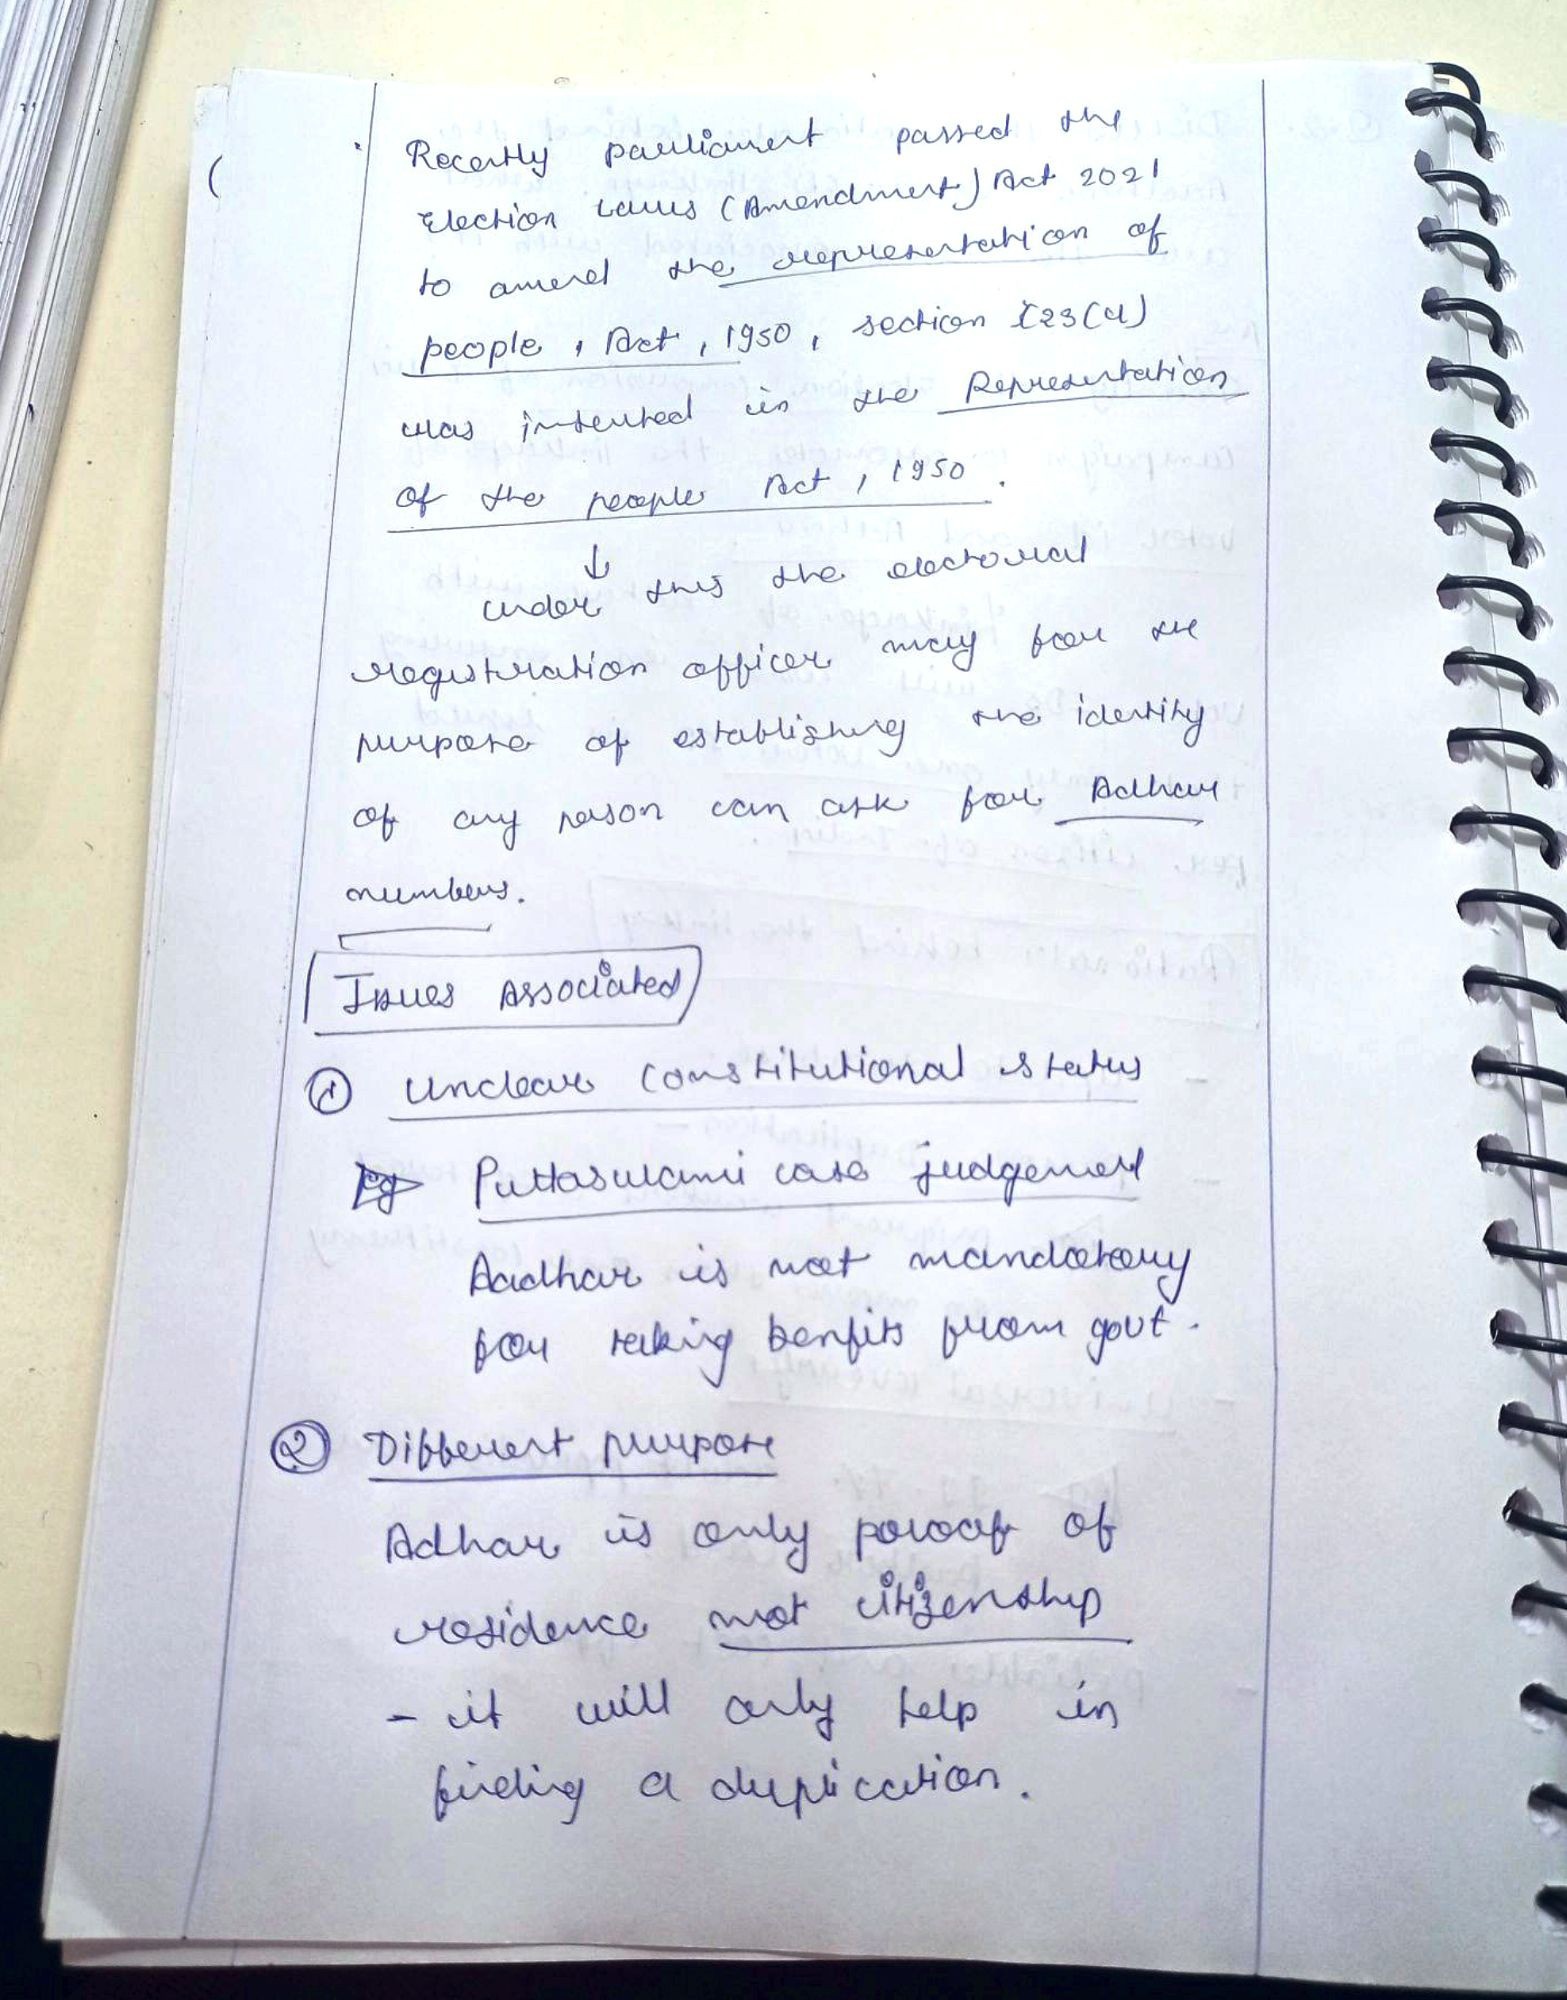 Recently parliament passed the
Election Laws (Amendment) Act 2021
to amend the representation of
people, Act, 1950, section 123(4)
was inserted in the Representation
of the people Act, 1950.
↓
under this the electoral
registration officer may for the
purpose of establishing the identity
of any person can ask for Adhar
numbers.
Issues Associated
① Unclear Constitutional status
Eg Puttaswami case judgement
Aadhar is not mandatory
for taking benfits from govt.
② Different purpose
Adhar is only proof of
residence not citizenship
- it will only help in
finding a duplication.